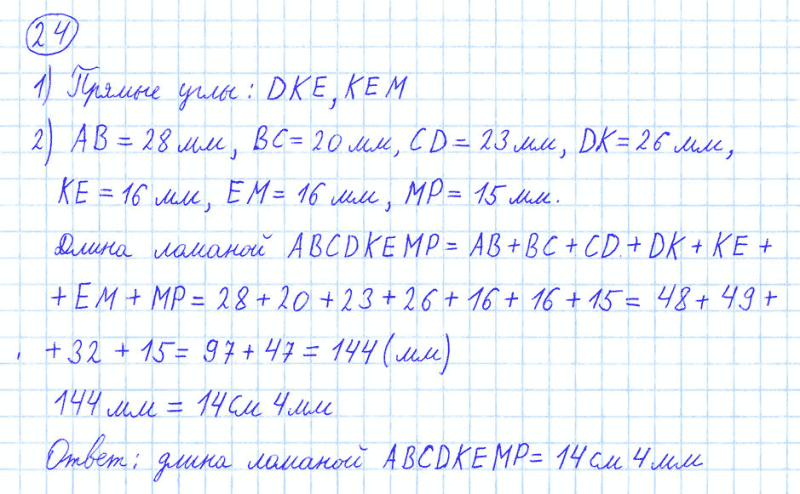 24
1) Прямые углы: DKE, KEM
2) AB = 28 мм, BC = 20 мм, CD = 23 мм, DK = 26 мм,
KE = 16 мм, EM = 16 мм, MP = 15 мм.
Длина ломаной ABCDKEMP = AB + BC + CD + DK + KE +
+ EM + MP = 28 + 20 + 23 + 26 + 16 + 16 + 15 = 48 + 49 +
+ 32 + 15 = 97 + 47 = 144 (мм)
144 мм = 14 см 4 мм
Ответ: длина ломаной ABCDKEMP = 14 см 4 мм